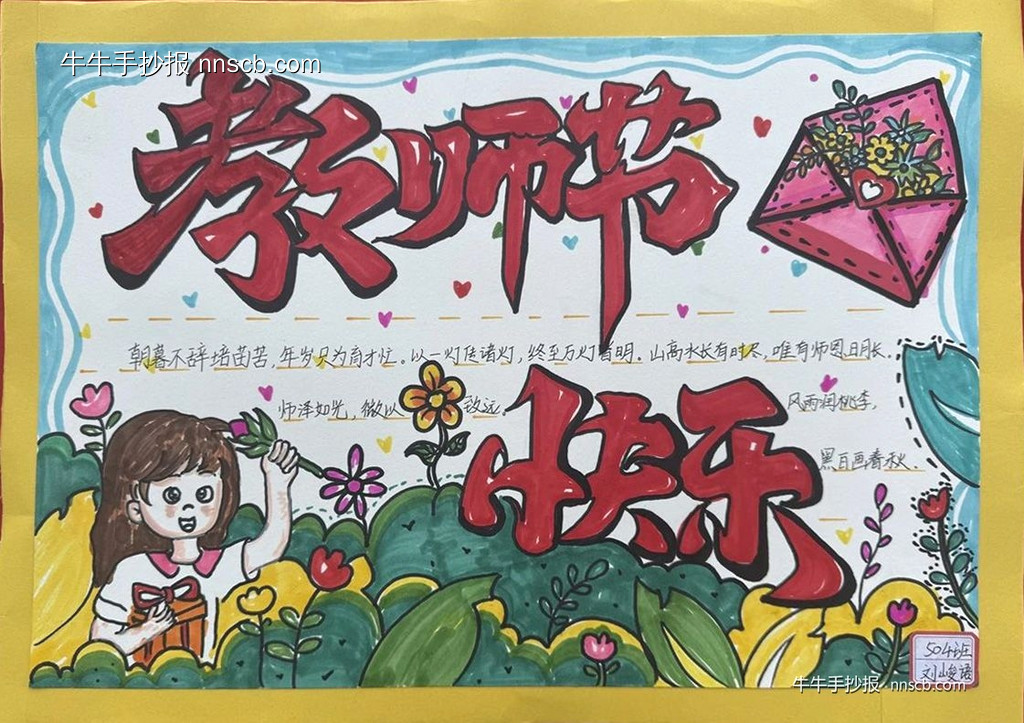 牛牛手抄报 nnscb.com
教师节
朝暮不辞培苗苦,年岁只为育才忙。以一灯传诸灯,终至万灯皆明。山高水长有时尽,唯有师恩日月长。
师泽如光,微以致远。 风雨润桃李,
黑白画春秋.
快乐
504班
刘峻语
牛牛手抄报 nnscb.com